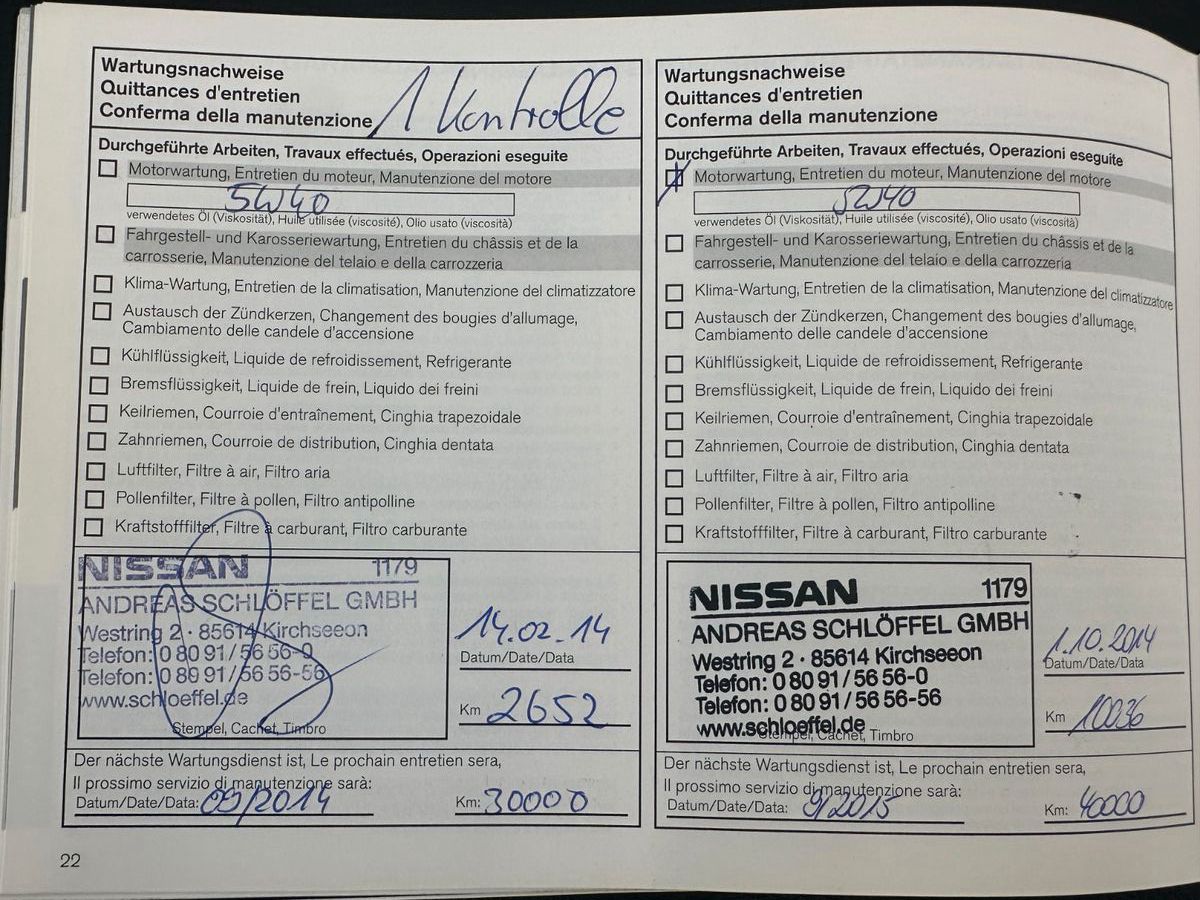 Wartungsnachweise
Quittances d'entretien
Conferma della manutenzione 1 Kontrolle
Durchgeführte Arbeiten, Travaux effectués, Operazioni eseguite
Motorwartung, Entretien du moteur, Manutenzione del motore
5W40
verwendetes Öl (Viskosität), Huile utilisée (viscosité), Olio usato (viscosità)
Fahrgestell- und Karosseriewartung, Entretien du châssis et de la
carrosserie, Manutenzione del telaio e della carrozzeria
Klima-Wartung, Entretien de la climatisation, Manutenzione del climatizzatore
Austausch der Zündkerzen, Changement des bougies d'allumage,
Cambiamento delle candele d'accensione
Kühlflüssigkeit, Liquide de refroidissement, Refrigerante
Bremsflüssigkeit, Liquide de frein, Liquido dei freini
Keilriemen, Courroie d'entraînement, Cinghia trapezoidale
Zahnriemen, Courroie de distribution, Cinghia dentata
Luftfilter, Filtre à air, Filtro aria
Pollenfilter, Filtre à pollen, Filtro antipolline
Kraftstofffilter, Filtre à carburant, Filtro carburante
NISSAN 1179
ANDREAS SCHLÖFFEL GMBH
Westring 2 · 85614 Kirchseeon
Telefon: 0 80 91 / 56 56-0
Telefon: 0 80 91 / 56 56-56
www.schloeffel.de
Stempel, Cachet, Timbro
14.02.14
Datum/Date/Data
Km 2652
Der nächste Wartungsdienst ist, Le prochain entretien sera,
Il prossimo servizio di manutenzione sarà:
Datum/Date/Data: 09/2014 Km: 30000
22
Wartungsnachweise
Quittances d'entretien
Conferma della manutenzione
Durchgeführte Arbeiten, Travaux effectués, Operazioni eseguite
Motorwartung, Entretien du moteur, Manutenzione del motore
5W40
verwendetes Öl (Viskosität), Huile utilisée (viscosité), Olio usato (viscosità)
Fahrgestell- und Karosseriewartung, Entretien du châssis et de la
carrosserie, Manutenzione del telaio e della carrozzeria
Klima-Wartung, Entretien de la climatisation, Manutenzione del climatizzatore
Austausch der Zündkerzen, Changement des bougies d'allumage,
Cambiamento delle candele d'accensione
Kühlflüssigkeit, Liquide de refroidissement, Refrigerante
Bremsflüssigkeit, Liquide de frein, Liquido dei freini
Keilriemen, Courroie d'entraînement, Cinghia trapezoidale
Zahnriemen, Courroie de distribution, Cinghia dentata
Luftfilter, Filtre à air, Filtro aria
Pollenfilter, Filtre à pollen, Filtro antipolline
Kraftstofffilter, Filtre à carburant, Filtro carburante
NISSAN 1179
ANDREAS SCHLÖFFEL GMBH
Westring 2 · 85614 Kirchseeon
Telefon: 0 80 91 / 56 56-0
Telefon: 0 80 91 / 56 56-56
www.schloeffel.de
Stempel, Cachet, Timbro
1.10.2014
Datum/Date/Data
Km 10036
Der nächste Wartungsdienst ist, Le prochain entretien sera,
Il prossimo servizio di manutenzione sarà:
Datum/Date/Data: 9/2015 Km: 40000